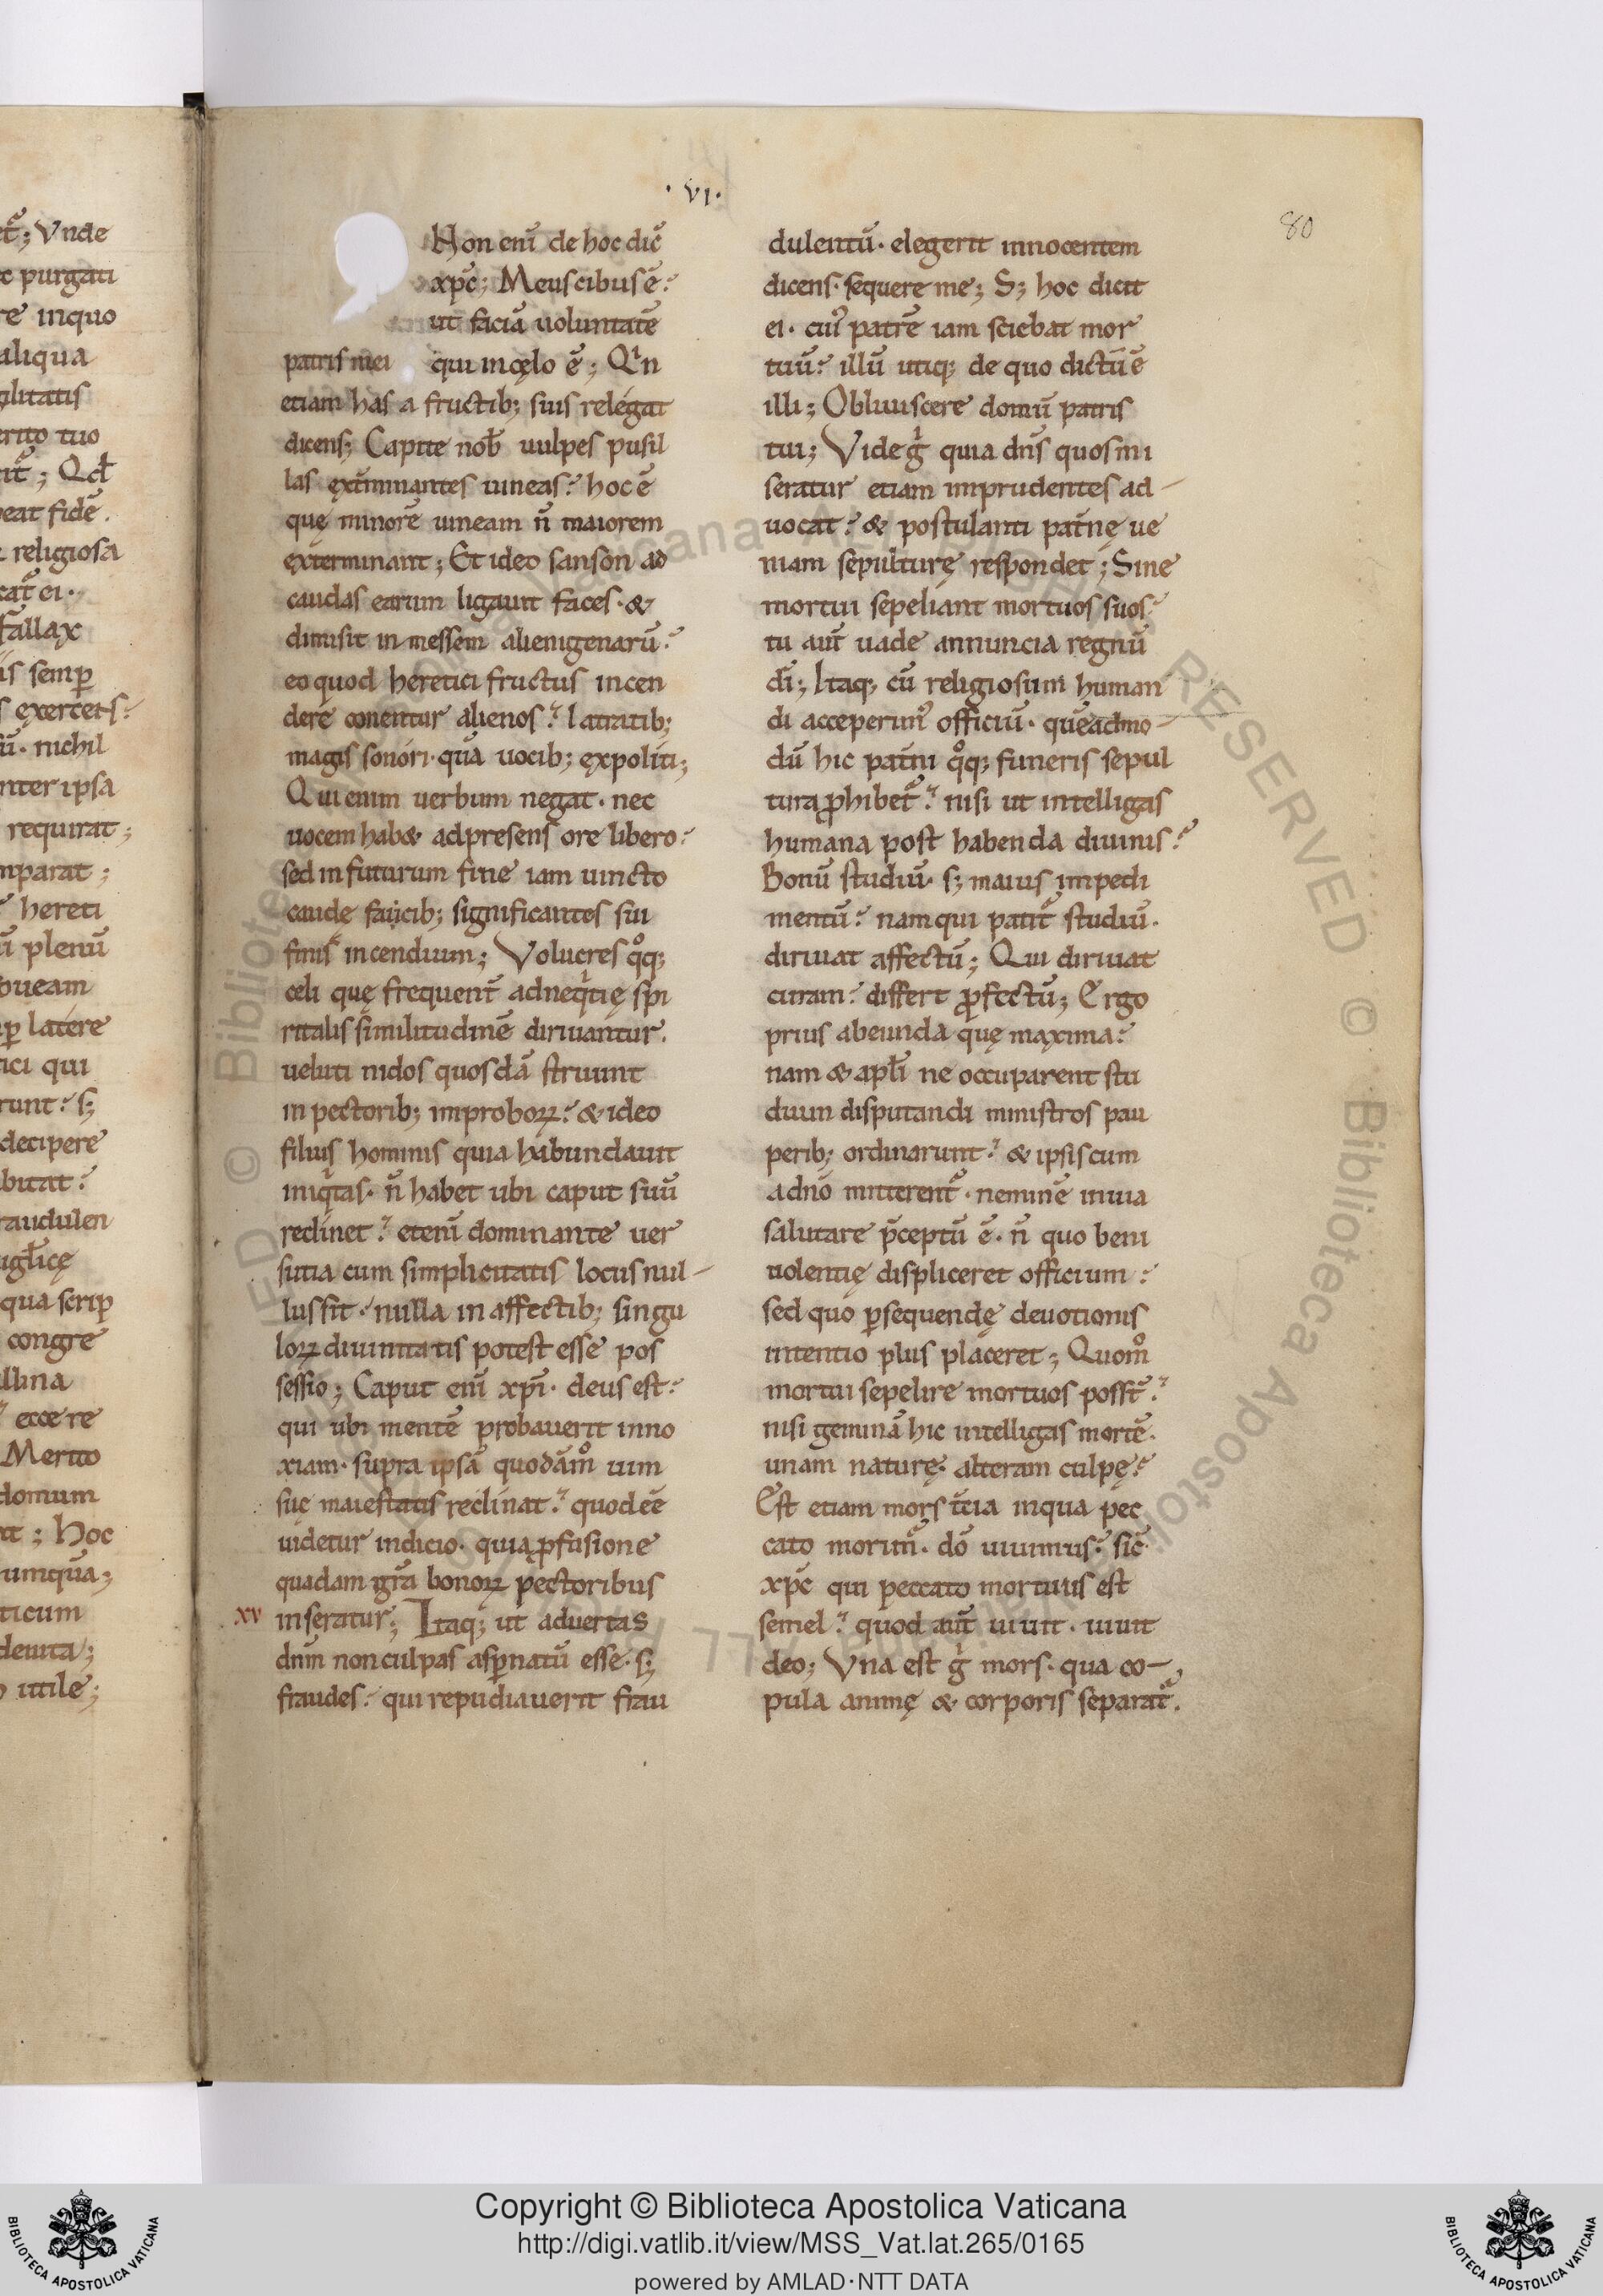 t᷑; Vnde
c purgati
re inquo
aliqua
gilitatis
erito tuo
rit᷑; Qd̄
beat fidē.
religiosa
cat᷑ ei.
fallax
iis semꝑ
s exerceris?
nichil
inter ipsa
requirat;
mparat;
hereti
ū plenū
oueam
ꝑ latere
tici qui
runt? s;
decipere
bitat?
raudulen
uglicę
qua scrip
congre
llina
ecce re
Merito
domum
at; Hoc
umquā;
ticum
deuita;
utile;
· VI ·
80
Non eni̅ de hoc dic̄
xp̄c; Meus cibus ē?
ut faciā uoluntatē
patris mei qui in cęlo ē; Qin
etiam has a fructib; suis relégat
dicens; Capite nob̄ uulpes pusil
las ext̄minantes uineas? hoc ē
quę minorē uineam n̄ maiorem
exterminant; Et ideo sanson ad
caudas earum ligauit faces · &
dimisit in messem alienigenarū?
eo quod heretici fructus incen
dere conentur alienos? latratib;
magis sonóri · quā uocib; ęxpolíti;
Qui enim uerbum negat · nec
uocem hab& ad presens ore libero?
sed in futurum fine iam uincto
caudę faucib; significantes sui
finis incendium; Volucres qͦq;
cęli quę frequent̄ ad neqͥtię spi
ritalis similitudinē diriuantur.
ueluti nidos quosdā struunt
in pectorib; improboꝝ? & ideo
filius hominis quia habundauit
iniqͥtas · n̄ habet ubi caput suū
reclinet? eteni̅ dominante uer
sutia cum simplicitatis locus nul-
lus sit · nulla in affectib; singu
loꝝ diuinitatis potest esse pos
sessio; Caput eni̅ xp̄i · deus est?
qui ubi mentē probauerit inno
xiam · supra ipsā quodāmͦ uim
suę maiestatis reclinat? quod eē
uidetur indicio · quia ꝓfusione
quadam gr̄a bonoꝝ pectoribus
xv inseratur; Itaq; ut aduertas
dn̄m non culpas aspꝑnatū esse · s;
fraudes? qui repudiauerit frau
dulentū · elegerit innocentem
dicens · sequere me; S; hoc dicit
ei · cui᷒ patrē iam sciebat mor
tuū? illū utiq; de quo dictū ē
illi; Obliuiscere domū patris
tui; Vide gͥ quia dn̄s quos mi
seratur etiam imprudentes ad-
uocat? & postulanti pat̄nę ue
niam sepulturę respondet; Sine
mortui sepeliant mortuos suos?
tu aut̄ uade annuncia regnū
dī; Itaq; cū religiosum human
di acceperim᷒ officiū · quēadmo-
dū hic pat̄ni qͦq; funeris sepul
tura ꝓhibet᷑? nisi ut intelligas
humana post habenda diuinis?
Bonū studiū · s; maius impedi
mentū? nam qui partit᷑ studiū ·
diriuat affectū; Qui diriuat
curam? differt ꝓfectū; Ergo
prius abeunda quę maxima?
nam & apl̄i ne occuparent stu
dium disputandi ministros pau
perib; ordinarunt? & ipsis cum
a dno̅ mitterent᷑ · neminē in uia
salutare p̄ceptū ē · n̄ quo beni
uolentię displiceret officium?
sed quo ꝑsequendę deuotionis
intentio plus placeret; Quomͦ
mortui sepelire mortuos possт̄?
nisi geminā hic intelligas mortē ·
unam naturę · alteram culpę?
Est etiam mors t̄cia in qua pec
cato morim᷒ · dō uiuimus? sic̄
xp̄c qui peccato mortuus est
semel? quod aut̄ uiuit · uiuit
deo; Vna est gͥ mors · qua co-
pula animę & corporis separat᷑.
Copyright © Biblioteca Apostolica Vaticana
http://digi.vatlib.it/view/MSS_Vat.lat.265/0165
powered by AMLAD·NTT DATA